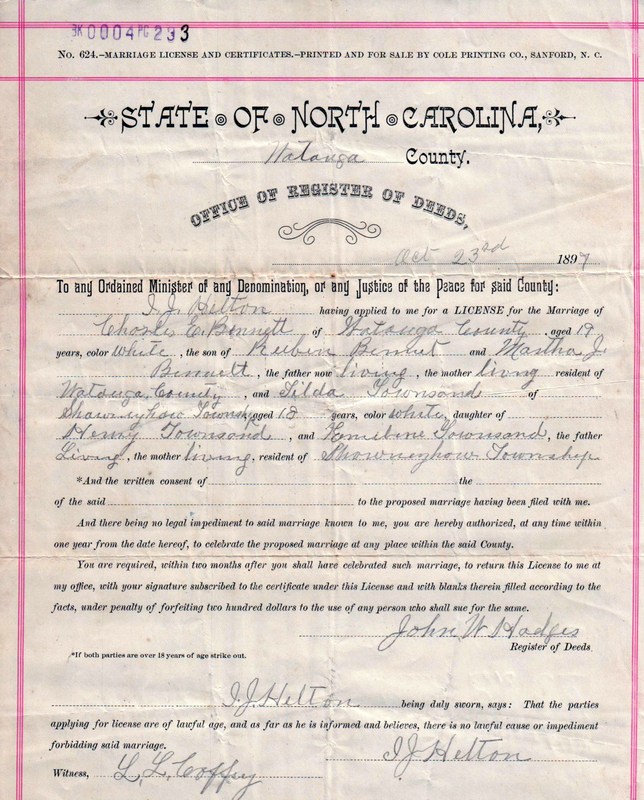 BK0004PG293
No. 624.—MARRIAGE LICENSE AND CERTIFICATES.—PRINTED AND FOR SALE BY COLE PRINTING CO., SANFORD, N. C.
STATE OF NORTH CAROLINA,
Watauga County.
OFFICE OF REGISTER OF DEEDS,
Oct 23rd 1897
To any Ordained Minister of any Denomination, or any Justice of the Peace for said County:
I. J. Helton having applied to me for a LICENSE for the Marriage of
Charles E. Bennett of Watauga County, aged 19
years, color White, the son of Reubin Bennet and Martha J.
Bennett, the father now living, the mother living resident of
Watauga County, and Tilda Townsand of
Shawneyhaw Townsh, aged 18 years, color White, daughter of
Henry Townsand, and Townsand, the father
Living, the mother living, resident of Shawneyhaw Township
*And the written consent of the
of the said to the proposed marriage having been filed with me.
And there being no legal impediment to said marriage known to me, you are hereby authorized, at any time within
one year from the date hereof, to celebrate the proposed marriage at any place within the said County.
You are required, within two months after you shall have celebrated such marriage, to return this License to me at
my office, with your signature subscribed to the certificate under this License and with blanks therein filled according to the
facts, under penalty of forfeiting two hundred dollars to the use of any person who shall sue for the same.
John W Hodges
Register of Deeds
*If both parties are over 18 years of age strike out.
I. J. Helton being duly sworn, says: That the parties
applying for license are of lawful age, and as far as he is informed and believes, there is no lawful cause or impediment
forbidding said marriage.
I J Helton
Witness, L. L. Coffey